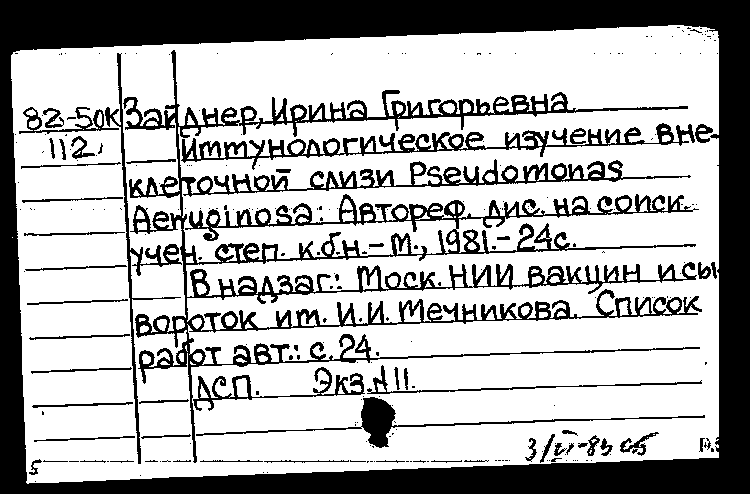 82-50К Зайднер, Ирина Григорьевна
112, Иммунологическое изучение вне-
клеточной слизи Pseudomonas
Aeruginosa: Автореф. дис. на соиск.
учен. степ. к.б.н. – М., 1981. – 24с.
В надзаг.: Моск. НИИ вакцин и сы-
вороток им. И.И. Мечникова. Список
работ авт.: с. 24.
ДСП. Экз. №11.
5